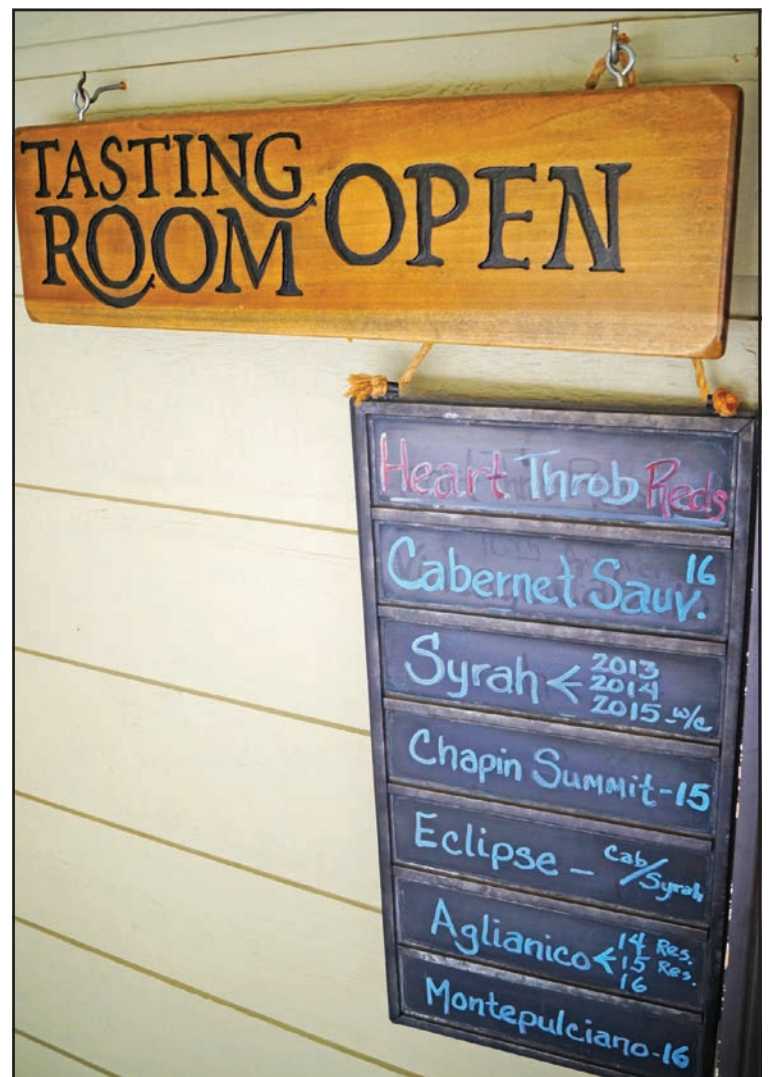 TASTING
ROOM OPEN
Heart Throb Reds
Cabernet Sauv. 16
Syrah < 2013
2014
2015 w/c
Chapin Summit-15
Eclipse - Cab/Syrah
Aglianico < 14 Res.
15 Res.
16
Montepulciano-16